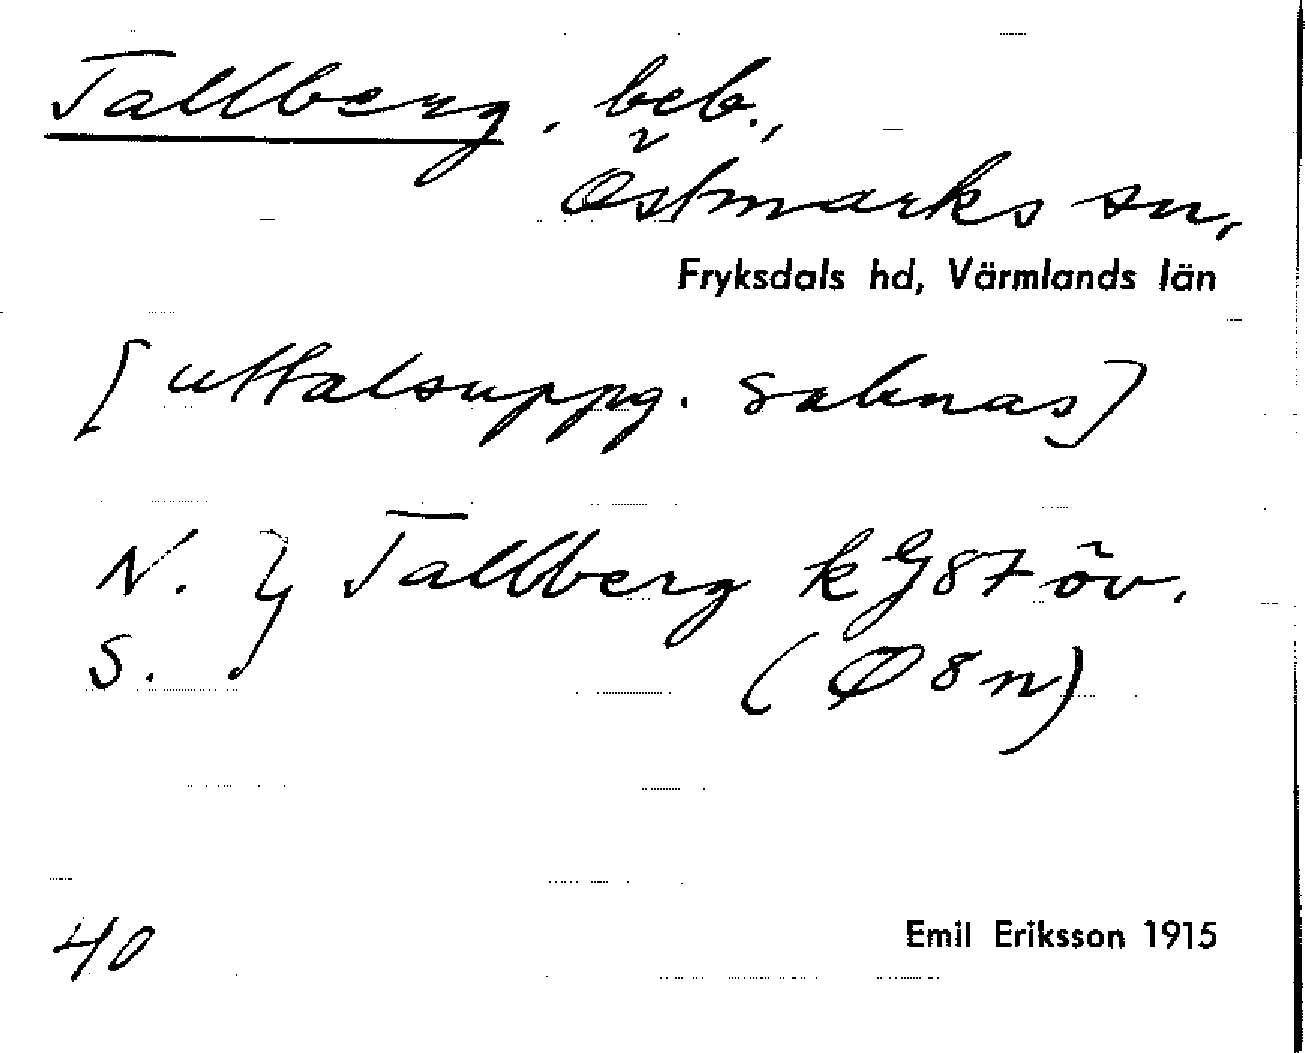 Tallberg, beb.,
Östmarks sn,
Fryksdals hd, Värmlands län
[uttalsuppg. saknas]
N. } Tallberg kG87 öv.
S. (Ø8n)
40
Emil Eriksson 1915